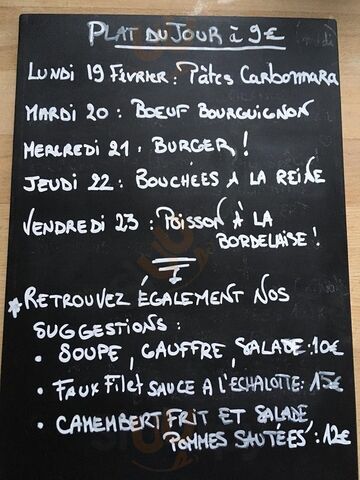 PLAT DU JOUR à 9€
LUNDI 19 FÉVRIER : PÂTES CARBONNARA
MARDI 20 : BOEUF BOURGUIGNON
MERCREDI 21 : BURGER !
JEUDI 22 : BOUCHÉES A LA REINE
VENDREDI 23 : POISSON À LA
BORDELAISE !
* RETROUVEZ ÉGALEMENT NOS
SUGGESTIONS :
• SOUPE, GAUFFRE, SALADE : 10€
• FAUX FILET SAUCE A L'ECHALOTTE : 15€
• CAMEMBERT FRIT ET SALADE,
POMMES SAUTÉES : 12€